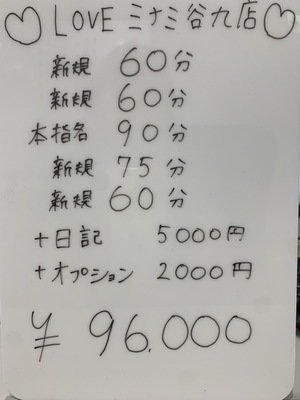 ♡ LOVE ミナミ谷九店 ♡
新規 60分
新規 60分
本指名 90分
新規 75分
新規 60分
+日記 5000円
+オプション 2000円
¥ 96.000